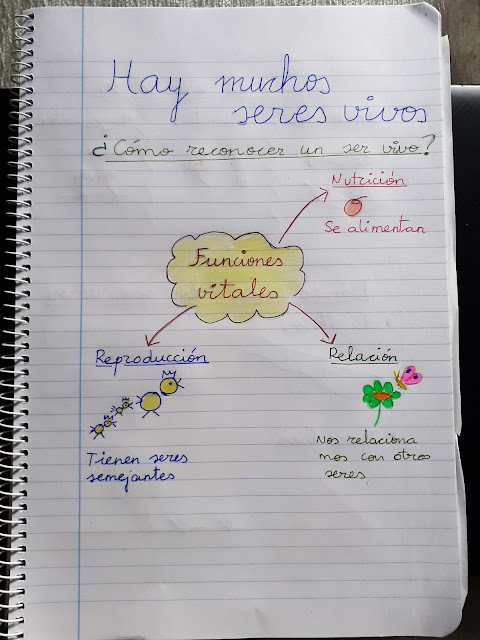 Hay muchos
seres vivos
¿Cómo reconocer un ser vivo?
Nutrición
Se alimentan
Funciones
vitales
Reproducción
Tienen seres
semejantes
Relación
Nos relaciona
mos con otros
seres